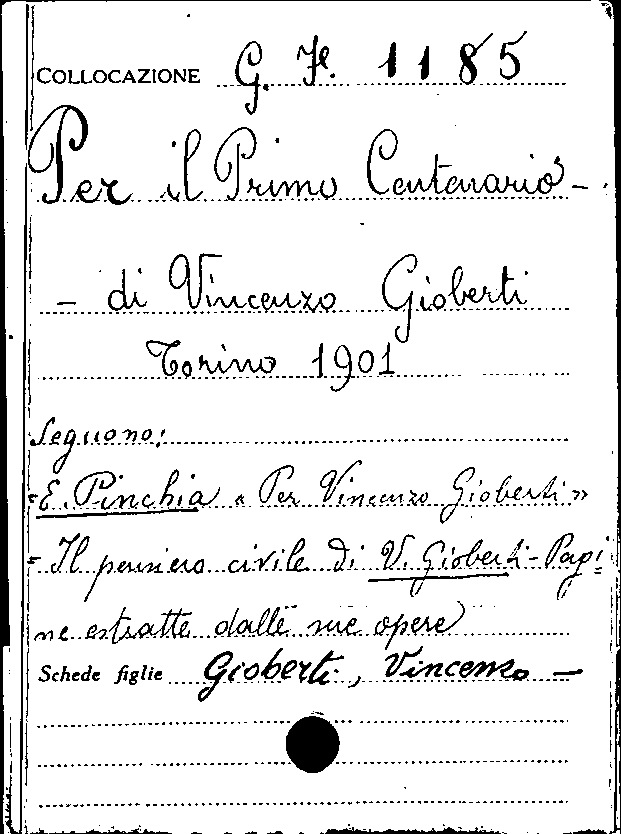 COLLOCAZIONE G. Je. 1185
Per il Primo Centenario -
- di Vincenzo Gioberti
Torino 1901
Seguono:
= E. Pinchia « Per Vincenzo Gioberti »
= Il pensiero civile di V. Gioberti - Pagi=
ne estratte dalle sue opere
Schede figlie Gioberti, Vincenzo -